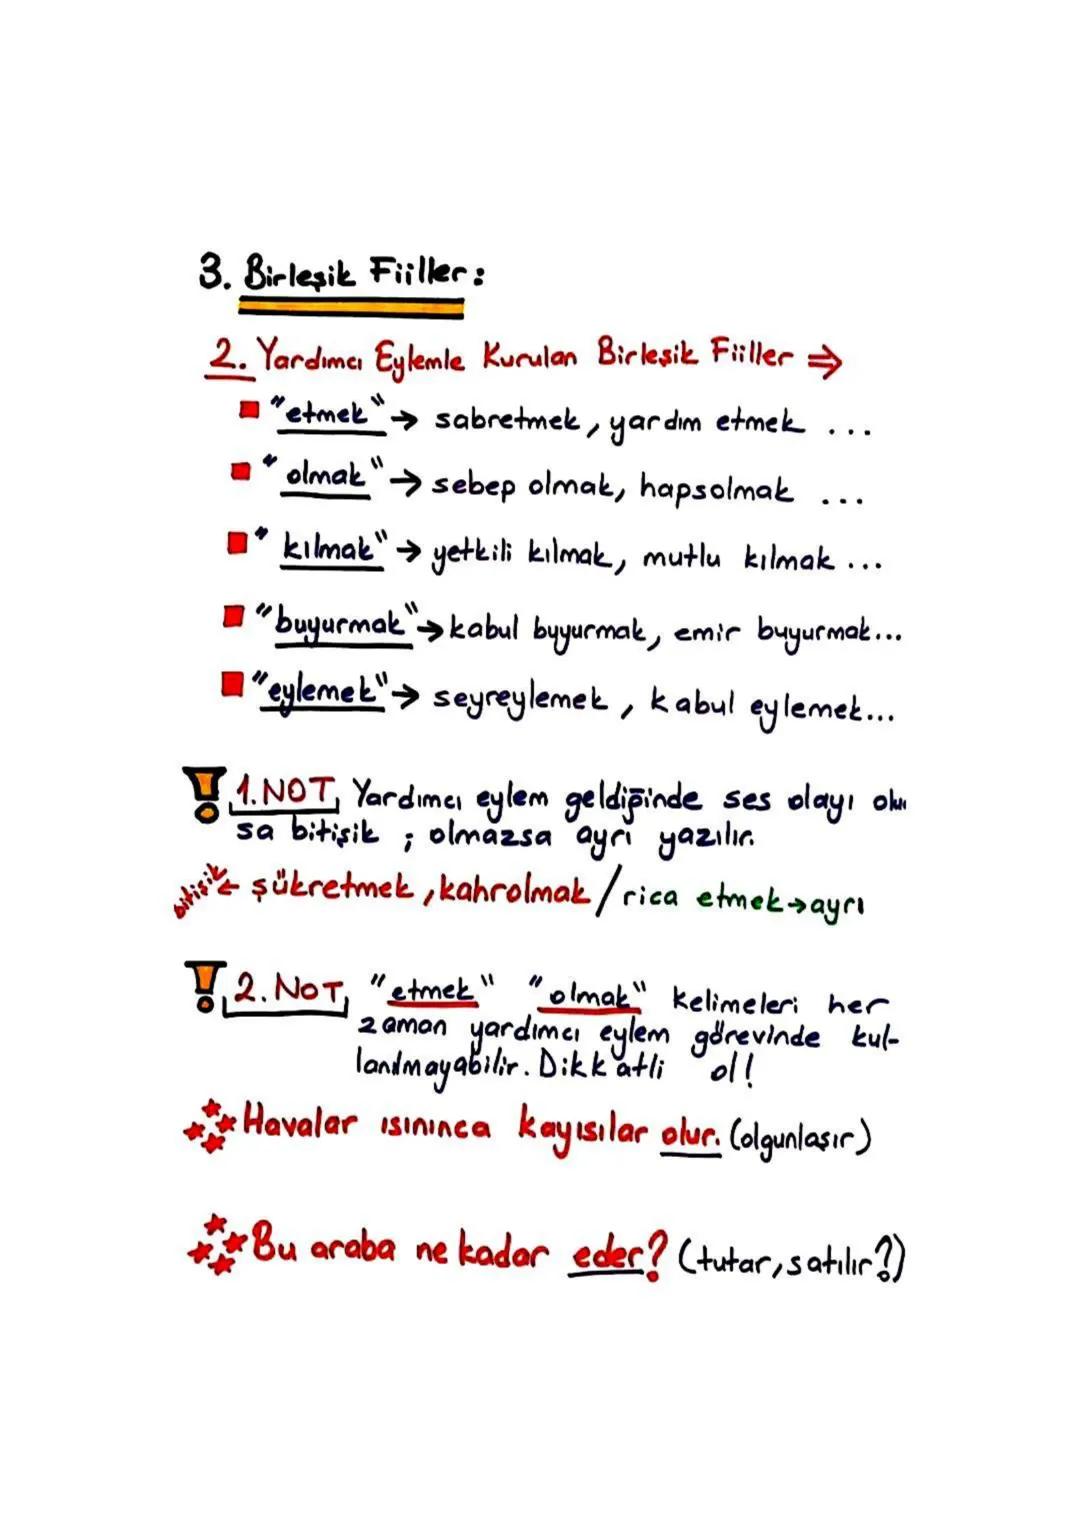 3. Birleşik Fiiller:
2. Yardımcı Eylemle Kurulan Birleşik Fiiller ⇒
"etmek" → sabretmek, yardım etmek ...
"olmak" → sebep olmak, hapsolmak ...
"kılmak" → yetkili kılmak, mutlu kılmak ...
"buyurmak" → kabul buyurmak, emir buyurmak...
"eylemek" → seyreylemek, kabul eylemek...
1. NOT, Yardımcı eylem geldiğinde ses olayı olur
sa bitişik ; olmazsa ayrı yazılır.
bitişik ← şükretmek, kahrolmak / rica etmek → ayrı
2. NOT, "etmek" "olmak" kelimeleri her
zaman yardımcı eylem görevinde kul-
lanılmayabilir. Dikkatli ol!
Havalar ısınınca kayısılar olur. (olgunlaşır)
Bu araba ne kadar eder? (tutar, satılır?)